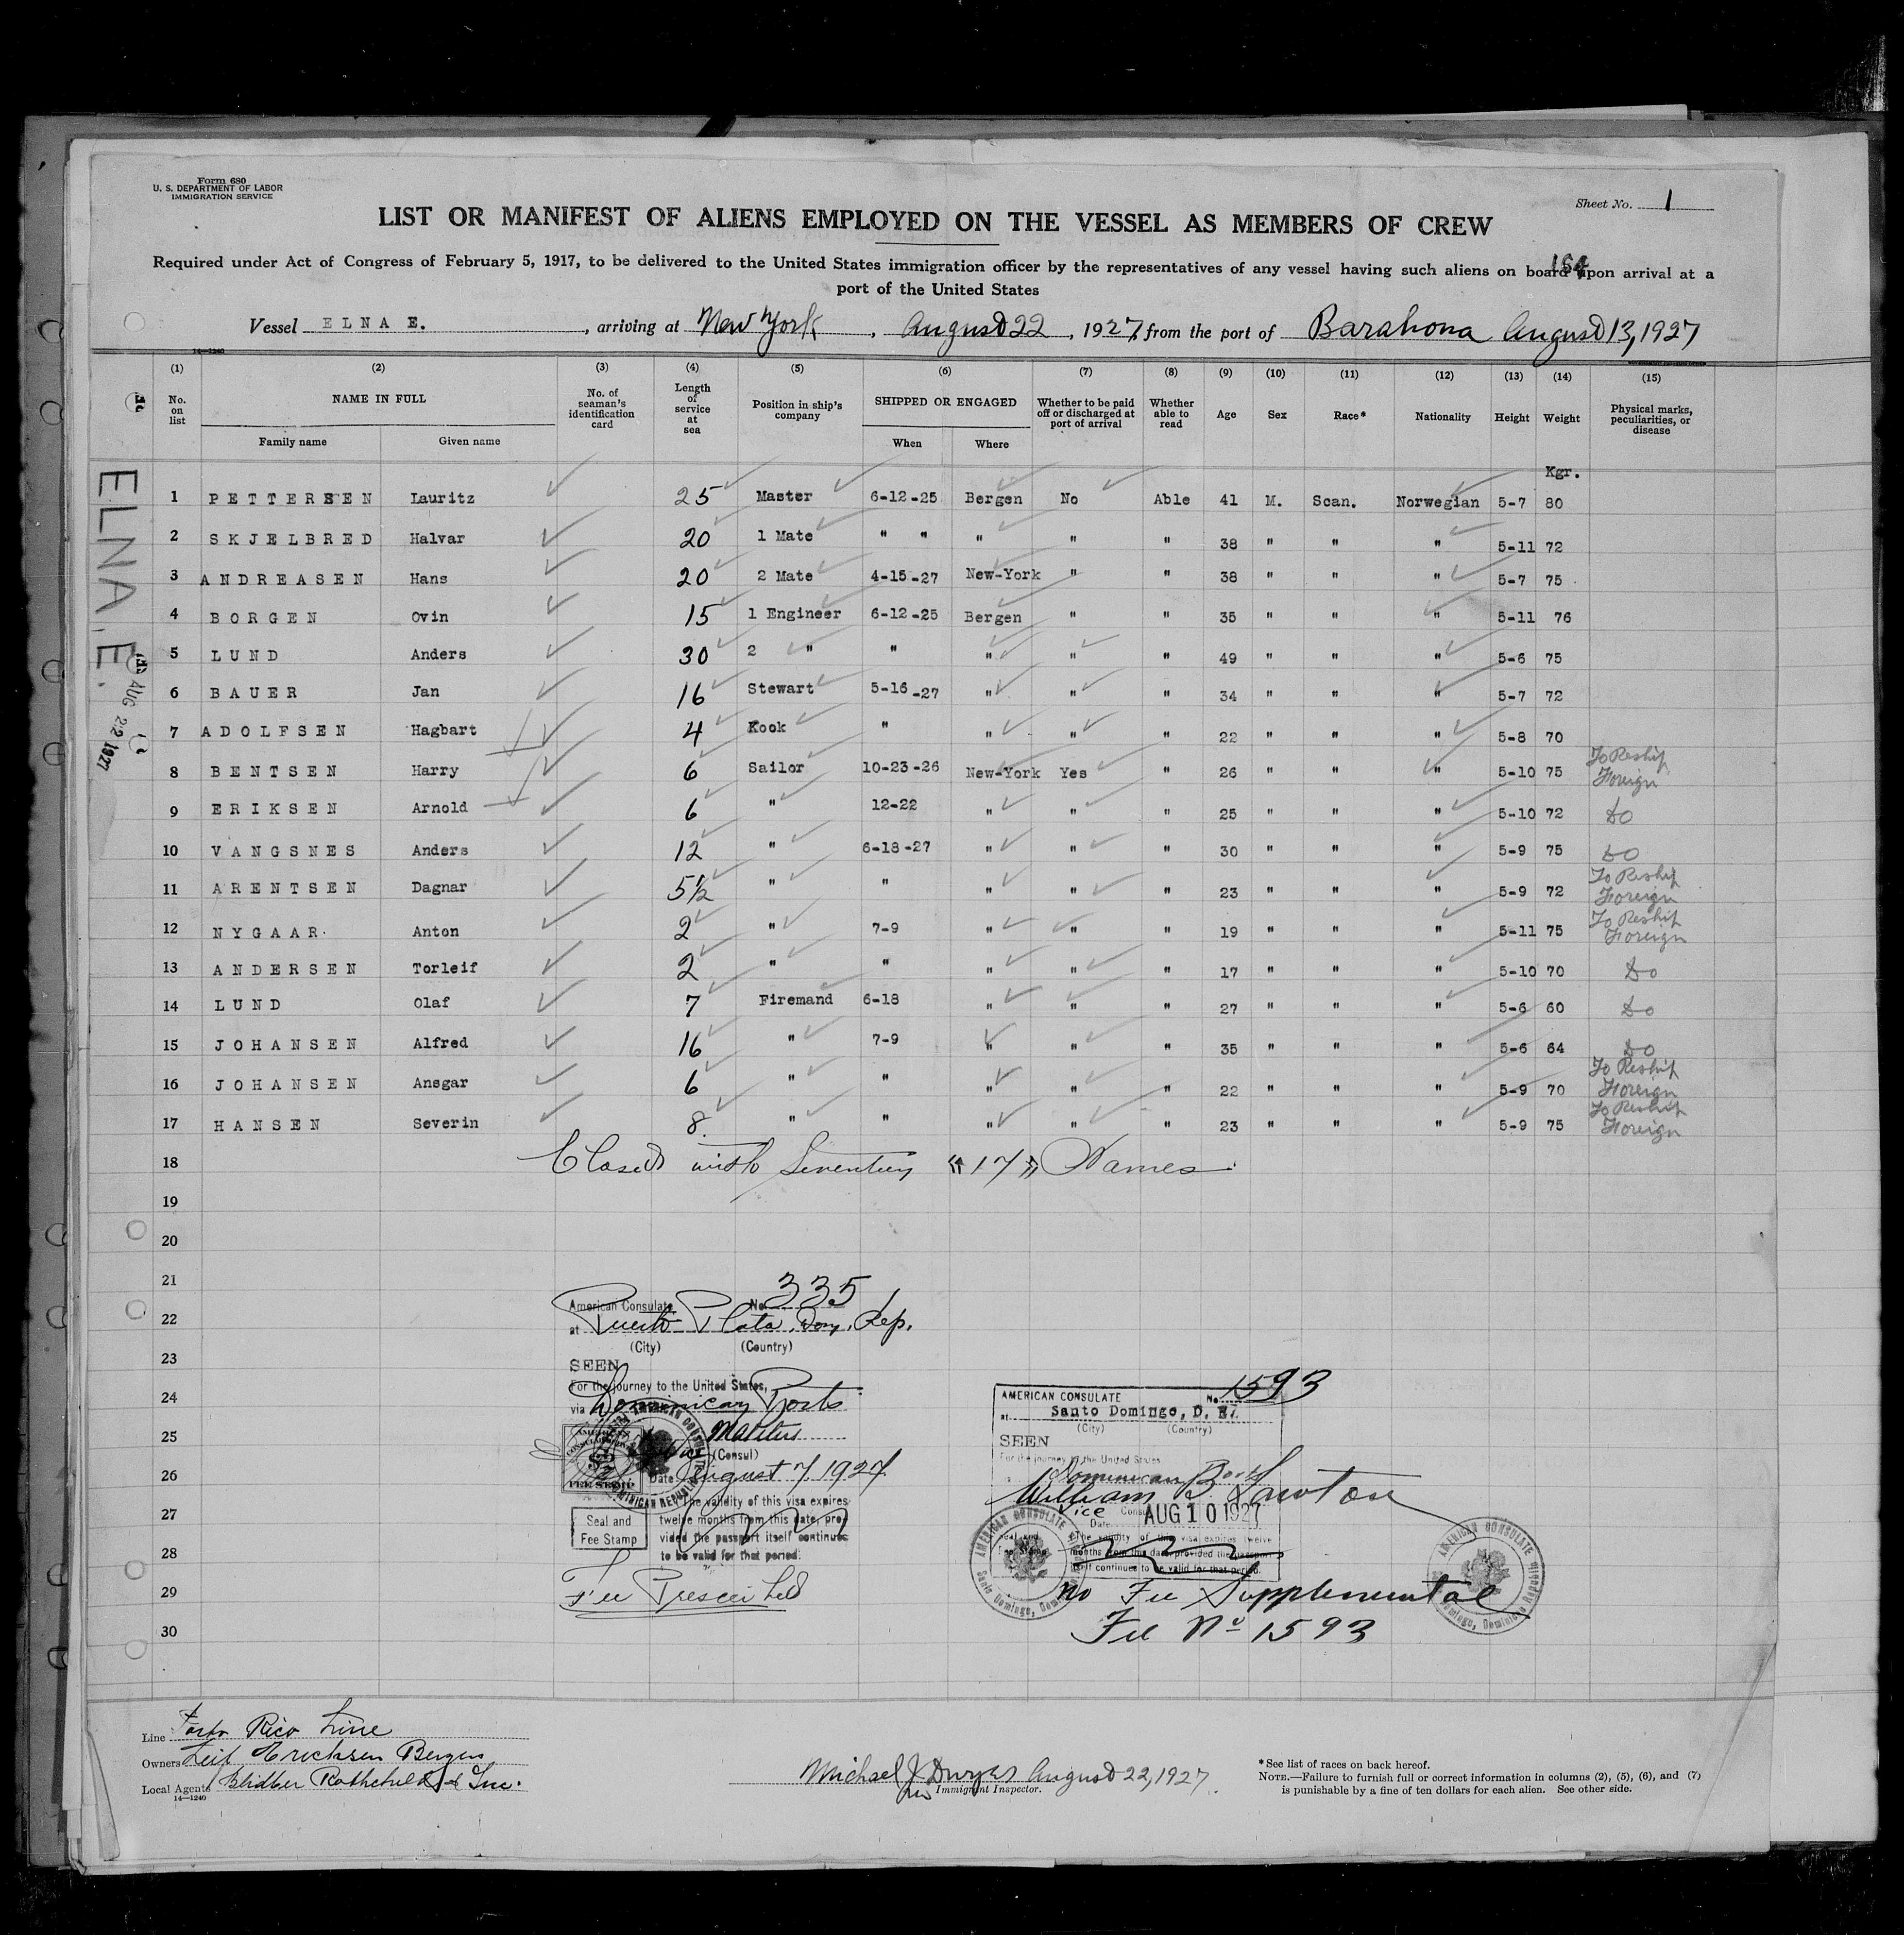 Form 680
U. S. DEPARTMENT OF LABOR
IMMIGRATION SERVICE
Sheet No. 1
LIST OR MANIFEST OF ALIENS EMPLOYED ON THE VESSEL AS MEMBERS OF CREW
Required under Act of Congress of February 5, 1917, to be delivered to the United States immigration officer by the representatives of any vessel having such aliens on board upon arrival at a
port of the United States
Vessel ELNA E. , arriving at New York , August 22 , 1927, from the port of Barahona August 13, 1927
14—1240
(1) (2) (3) (4) (5) (6) (7) (8) (9) (10) (11) (12) (13) (14) (15)
No. on list NAME IN FULL No. of seaman's identification card Length of service at sea Position in ship's company SHIPPED OR ENGAGED Whether to be paid off or discharged at port of arrival Whether able to read Age Sex Race* Nationality Height Weight Physical marks, peculiarities, or disease
Family name Given name When Where
Kgr.
1 PETTERSEN Lauritz 25 Master 6-12-25 Bergen No Able 41 M. Scan. Norwegian 5-7 80
2 SKJELBRED Halvar 20 1 Mate " " " " " 38 " " " 5-11 72
3 ANDREASEN Hans 20 2 Mate 4-15-27 New-York " " 38 " " " 5-7 75
4 BORGEN Ovin 15 1 Engineer 6-12-25 Bergen " " 35 " " " 5-11 76
5 LUND Anders 30 2 " " " " " 49 " " " 5-6 75
6 BAUER Jan 16 Stewart 5-16-27 " " " 34 " " " 5-7 72
7 ADOLFSEN Hagbart 4 Kook " " " " 22 " " " 5-8 70
8 BENTSEN Harry 6 Sailor 10-23-26 New-York Yes " 26 " " " 5-10 75 To Reship Foreign
9 ERIKSEN Arnold 6 " 12-22 " " " 25 " " " 5-10 72 Do
10 VANGSNES Anders 12 " 6-18-27 " " " 30 " " " 5-9 75 Do
11 ARENTSEN Dagnar 5½ " " " " " 23 " " " 5-9 72 To Reship Foreign
12 NYGAAR. Anton 2 " 7-9 " " " 19 " " " 5-11 75 To Reship Foreign
13 ANDERSEN Torleif 2 " " " " " 17 " " " 5-10 70 Do
14 LUND Olaf 7 Firemand 6-18 " " " 27 " " " 5-6 60 Do
15 JOHANSEN Alfred 16 " 7-9 " " " 35 " " " 5-6 64 Do
16 JOHANSEN Ansgar 6 " " " " " 22 " " " 5-9 70 To Reship Foreign
17 HANSEN Severin 8. " " " " " 23 " " " 5-9 75 To Reship Foreign
18 Closed with Seventeen "17" Names
19
20
21
22
23
24
25
26
27
28
29
30
ELNA. E.
AUG 22 1927
American Consulate No. 335
at Puerto Plata, Dom. Rep.
(City) (Country)
SEEN
For the journey to the United States,
via Dominican Ports
(Consul)
Date August 7, 1927
The validity of this visa expires
twelve months from this date, pro-
vided the passport itself continues
to be valid for that period.
Seal and
Fee Stamp
Fee Prescribed
AMERICAN CONSULATE No. 1593
at Santo Domingo, D. R.
(City) (Country)
SEEN
For the journey to the United States
Dominican Ports
William B. Lawton
Vice Consul
Date AUG 10 1927
The validity of this visa expires twelve
months from this date, provided the passport
itself continues to be valid for that period.
AMERICAN CONSULATE
Santo Domingo, Dominican Republic
No Fee Supplemental
Fee No 1593
Line Porto Rico Line
Owners Leif Ericksen Bergen
Local Agents
14—1240
Michael J. Dwyer August 22, 1927.
Immigrant Inspector.
*See list of races on back hereof.
NOTE.—Failure to furnish full or correct information in columns (2), (5), (6), and (7)
is punishable by a fine of ten dollars for each alien. See other side.